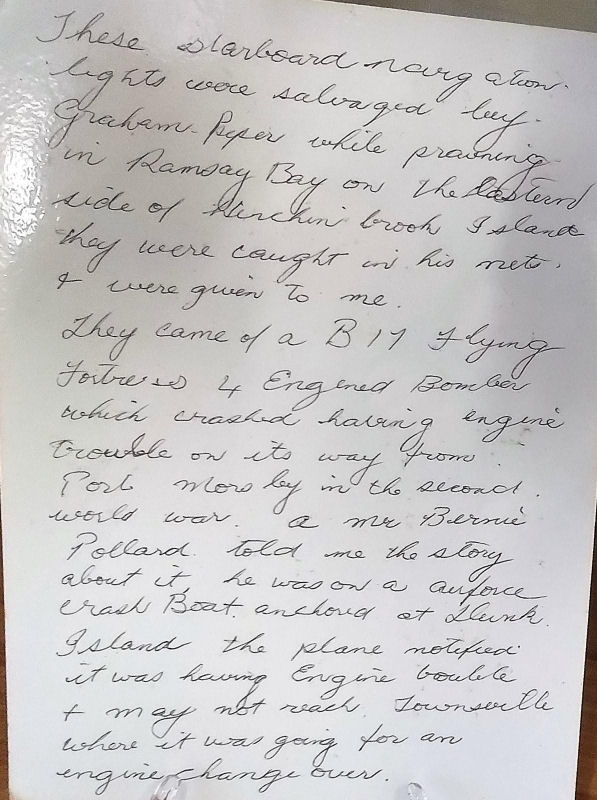 These starboard navigation
lights were salvaged by
Graham Piper while prawning
in Ramsay Bay on the Eastern
side of Hinchinbrook Island
they were caught in his nets.
& were given to me.
They came of a B 17 Flying
Fortress 4 Engined Bomber
which crashed having engine
trouble on its way from
Port Morsby in the second
world war. a mr Bernie
Pollard. told me the story
about it, he was on a airforce
crash Boat. anchored at Dunk
Island the plane notified
it was having Engine touble
& may not reach Townsville
where it was going for an
engine change over.